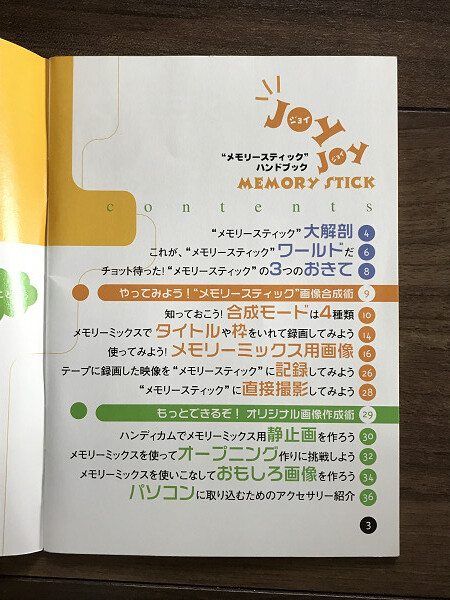 JOY
ジョイ
JOY
ジョイ
“メモリースティック”
ハンドブック
MEMORY STICK
contents
“メモリースティック”大解剖 4
これが、“メモリースティック”ワールドだ 6
チョット待った!“メモリースティック”の3つのおきて 8
やってみよう!“メモリースティック”画像合成術 9
知っておこう!合成モードは4種類 10
メモリーミックスでタイトルや枠をいれて録画してみよう 14
使ってみよう!メモリーミックス用画像 16
テープに録画した映像を“メモリースティック”に記録してみよう 26
“メモリースティック”に直接撮影してみよう 28
もっとできるぞ! オリジナル画像作成術 29
ハンディカムでメモリーミックス用静止画を作ろう 30
メモリーミックスを使ってオープニング作りに挑戦しよう 32
メモリーミックスを使いこなしておもしろ画像を作ろう 34
パソコンに取り込むためのアクセサリー紹介 36
3